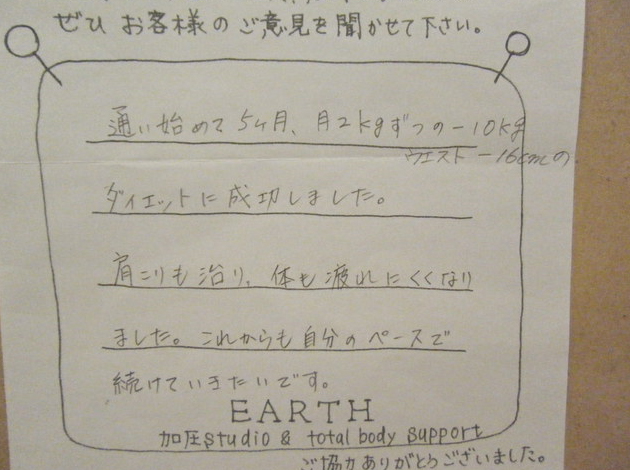 ぜひ お客様の ご意見を聞かせて下さい。
通い始めて5ヶ月、月2kgずつの−10kg
ウエスト −16cmの
ダイエットに成功しました。
肩こりも治り、体も疲れにくくなり
ました。これからも自分のペースで
続けていきたいです。
EARTH
加圧studio & total body support
ご協力ありがとうございました。